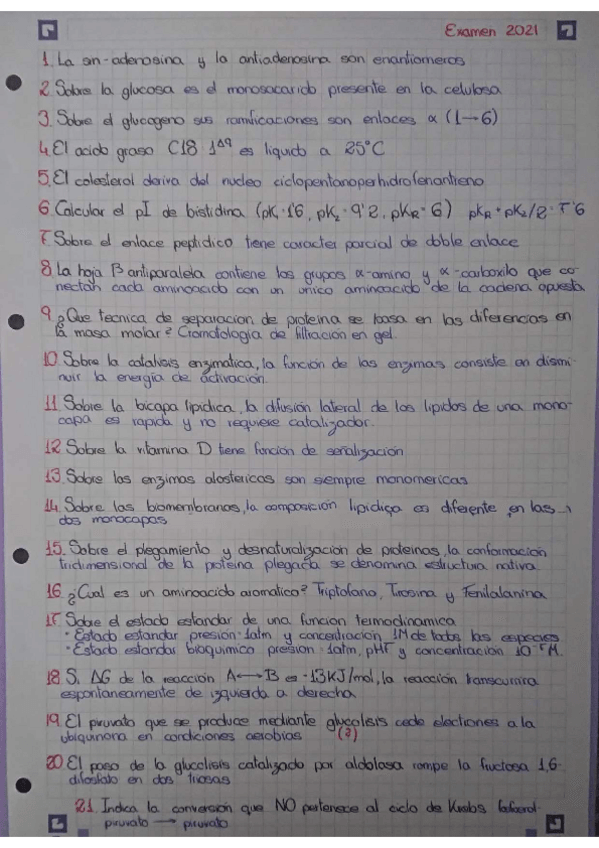 Examen 2021
1. La sn-adenosina y la antiadenosina son enantiomeros
2. Sobre la glucosa es el monosacarido presente en la celulosa
3. Sobre el glucogeno sus ramificaciones son enlaces α (1→6)
4. El acido graso C18 1Δ9 es liquido a 25°C
5. El colesterol deriva del nucleo ciclopentanoperhidrofenantreno
6. Calcular el pI de histidina (pK₁ 1'6, pK₂ 9'2, pKR 6) pKR + pK₂/2 = 7'6
7. Sobre el enlace peptidico tiene caracter parcial de doble enlace
8. La hoja β antiparalela contiene los grupos α-amino y α-carboxilo que co-
nectan cada aminoacido con un unico aminoacido de la cadena opuesta
9. ¿Que tecnica de separacion de proteina se basa en las diferencias en
la masa molar? Cromatologia de filtración en gel.
10. Sobre la catalisis enzimatica, la función de las enzimas consiste en dismi-
nuir la energia de activación.
11. Sobre la bicapa lipidica, la difusión lateral de los lipidos de una mono-
capa es rapida y no requiere catalizador.
12. Sobre la vitamina D tiene función de señalización
13. Sobre las enzimas alostericas son siempre monomericas
14. Sobre las biomembranas, la composición lipidica es diferente en las
dos monocapas
15. Sobre el plegamiento y desnaturalización de proteinas, la conformación
tridimensional de la proteina plegada se denomina estructura nativa.
16. ¿Cual es un aminoacido aromatico? Triptofano, Tirosina y Fenilalanina
17. Sobre el estado estandar de una funcion termodinamica
• Estado estandar presión 1atm y concentración 1M de todas las especies
• Estado estandar bioquimico presion 1atm, pH7 y concentración 10⁻⁷M.
18. Si ΔG de la reacción A↔B es -13KJ/mol, la reacción transcurrira
espontaneamente de izquierda a derecha
19. El piruvato que se produce mediante glucolisis cede electrones a la
ubiquinona en condiciones aerobias (?)
20. El paso de la glucolisis catalizado por aldolasa rompe la fructosa 1,6-
difosfato en dos triosas
21. Indica la conversión que NO pertenece al ciclo de Krebs
piruvato → piruvato